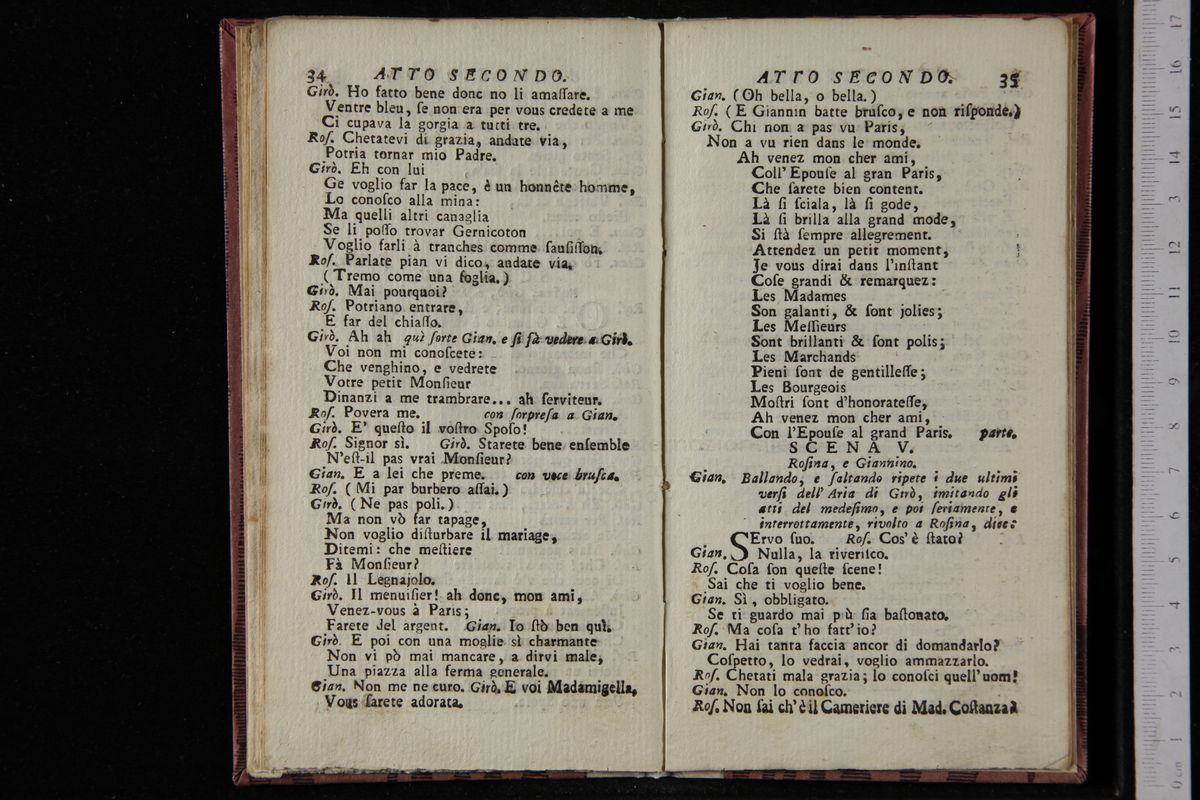 34 ATTO SECONDO.
Girò. Ho fatto bene donc no li amaſſare.
Ventre bleu, ſe non era per vous credete a me
Ci cupava la gorgia a tutti tre.
Roſ. Chetatevi di grazia, andate via,
Potria tornar mio Padre.
Girò. Eh con lui
Ge voglio far la pace, è un honnête homme,
Lo conoſco alla mina:
Ma quelli altri canaglia
Se li poſſo trovar Gernicoton
Voglio farli à tranches comme ſauſiſſon.
Roſ. Parlate pian vi dico, andate via.
(Tremo come una foglia.)
Girò. Mai pourquoi?
Roſ. Potriano entrare,
E far del chiaſſo.
Girò. Ah ah quì ſorte Gian. e ſi fà vedere a Girò.
Voi non mi conoſcete:
Che venghino, e vedrete
Votre petit Monſieur
Dinanzi a me trambrare... ah ſerviteur.
Roſ. Povera me. con ſorpreſa a Gian.
Girò. E' queſto il voſtro Spoſo!
Roſ. Signor sì. Girò. Starete bene enſemble
N'eſt-il pas vrai Monſieur?
Gian. E a lei che preme. con voce bruſca.
Roſ. (Mi par burbero aſſai.)
Girò. (Ne pas poli.)
Ma non vò far tapage,
Non voglio diſturbare il mariage,
Ditemi: che meſtiere
Fà Monſieur?
Roſ. Il Legnajolo.
Girò. Il menuiſier! ah donc, mon ami,
Venez-vous à Paris;
Farete del argent. Gian. Io ſtò ben quì.
Girò. E poi con una moglie sì charmante
Non vi pò mai mancare, a dirvi male,
Una piazza alla ferma generale.
Gian. Non me ne curo. Girò. E voi Madamigella,
Vous ſarete adorata.
ATTO SECONDO. 35
Gian. (Oh bella, o bella.)
Roſ. (E Giannin batte bruſco, e non riſponde.)
Girò. Chi non a pas vu Paris,
Non a vu rien dans le monde.
Ah venez mon cher ami,
Coll' Epouſe al gran Paris,
Che ſarete bien content.
Là ſi ſciala, là ſi gode,
Là ſi brilla alla grand mode,
Si ſtà ſempre allegrement.
Attendez un petit moment,
Je vous dirai dans l'inſtant
Coſe grandi & remarquez:
Les Madames
Son galanti, & ſont jolies;
Les Meſſieurs
Sont brillanti & ſont polis;
Les Marchands
Pieni ſont de gentilleſſe;
Les Bourgeois
Moſtri ſont d'honorateſſe,
Ah venez mon cher ami,
Con l'Epouſe al grand Paris. parte.
SCENA V.
Roſina, e Giannino.
Gian. Ballando, e ſaltando ripete i due ultimi
verſi dell' Aria di Girò, imitando gli
atti del medeſimo, e poi ſeriamente, e
interrottamente, rivolto a Roſina, dice:
SErvo ſuo. Roſ. Cos' è ſtato?
Gian. Nulla, la riveriſco.
Roſ. Coſa ſon queſte ſcene!
Sai che ti voglio bene.
Gian. Sì, obbligato.
Se ti guardo mai più ſia baſtonato.
Roſ. Ma coſa t' ho fatt' io?
Gian. Hai tanta faccia ancor di domandarlo?
Coſpetto, lo vedrai, voglio ammazzarlo.
Roſ. Chetati mala grazia; lo conoſci quell' uom!
Gian. Non lo conoſco.
Roſ. Non ſai ch' è il Cameriere di Mad. Coſtanza?